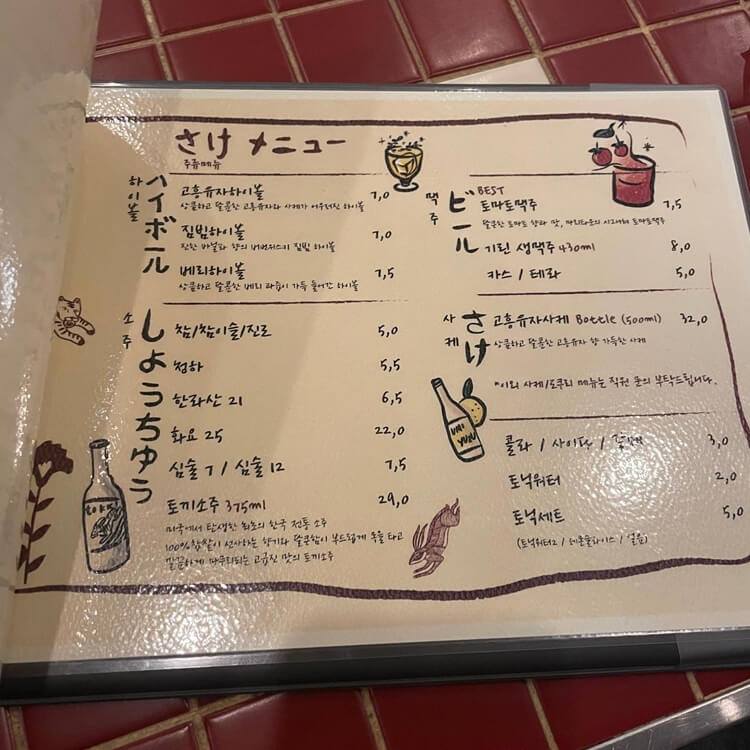 さけ メニュー
주류메뉴
ハイボール
하이볼
고흥유자하이볼 7,0
상큼하고 달콤한 고흥유자와 사케가 어우러진 하이볼
짐빔하이볼 7,0
진한 바닐라 향의 버번위스키 짐빔 하이볼
베리하이볼 7,5
상큼하고 달콤한 베리 과즙이 가득 들어간 하이볼
しょうちゅう
소주
참/참이슬/진로 5,0
청하 5,5
한라산 21 6,5
화요 25 22,0
심술 7 / 심술 12 7,5
토끼소주 375ml 29,0
미국에서 탄생한 최초의 한국 전통 소주
100% 찹쌀이 선사하는 향기와 달콤함이 부드럽게 목을 타고
깔끔하게 마무리되는 고급진 맛의 토끼소주
ビール
맥주
BEST
토마토맥주 7,5
달콤한 토마토 향과 맛, 마리타운의 시그니처 토마토맥주
기린 생맥주 430ml 8,0
카스 / 테라 5,0
さけ
사케
고흥유자사케 Bottle (500ml) 32,0
상큼하고 달콤한 고흥유자 향 가득한 사케
*이외 사케/도쿠리 메뉴는 직원 문의 부탁드립니다.
YUZU
콜라 / 사이다 / 3,0
토닉워터 2,0
토닉세트 5,0
(토닉워터2 / 레몬슬라이스 / 얼음)